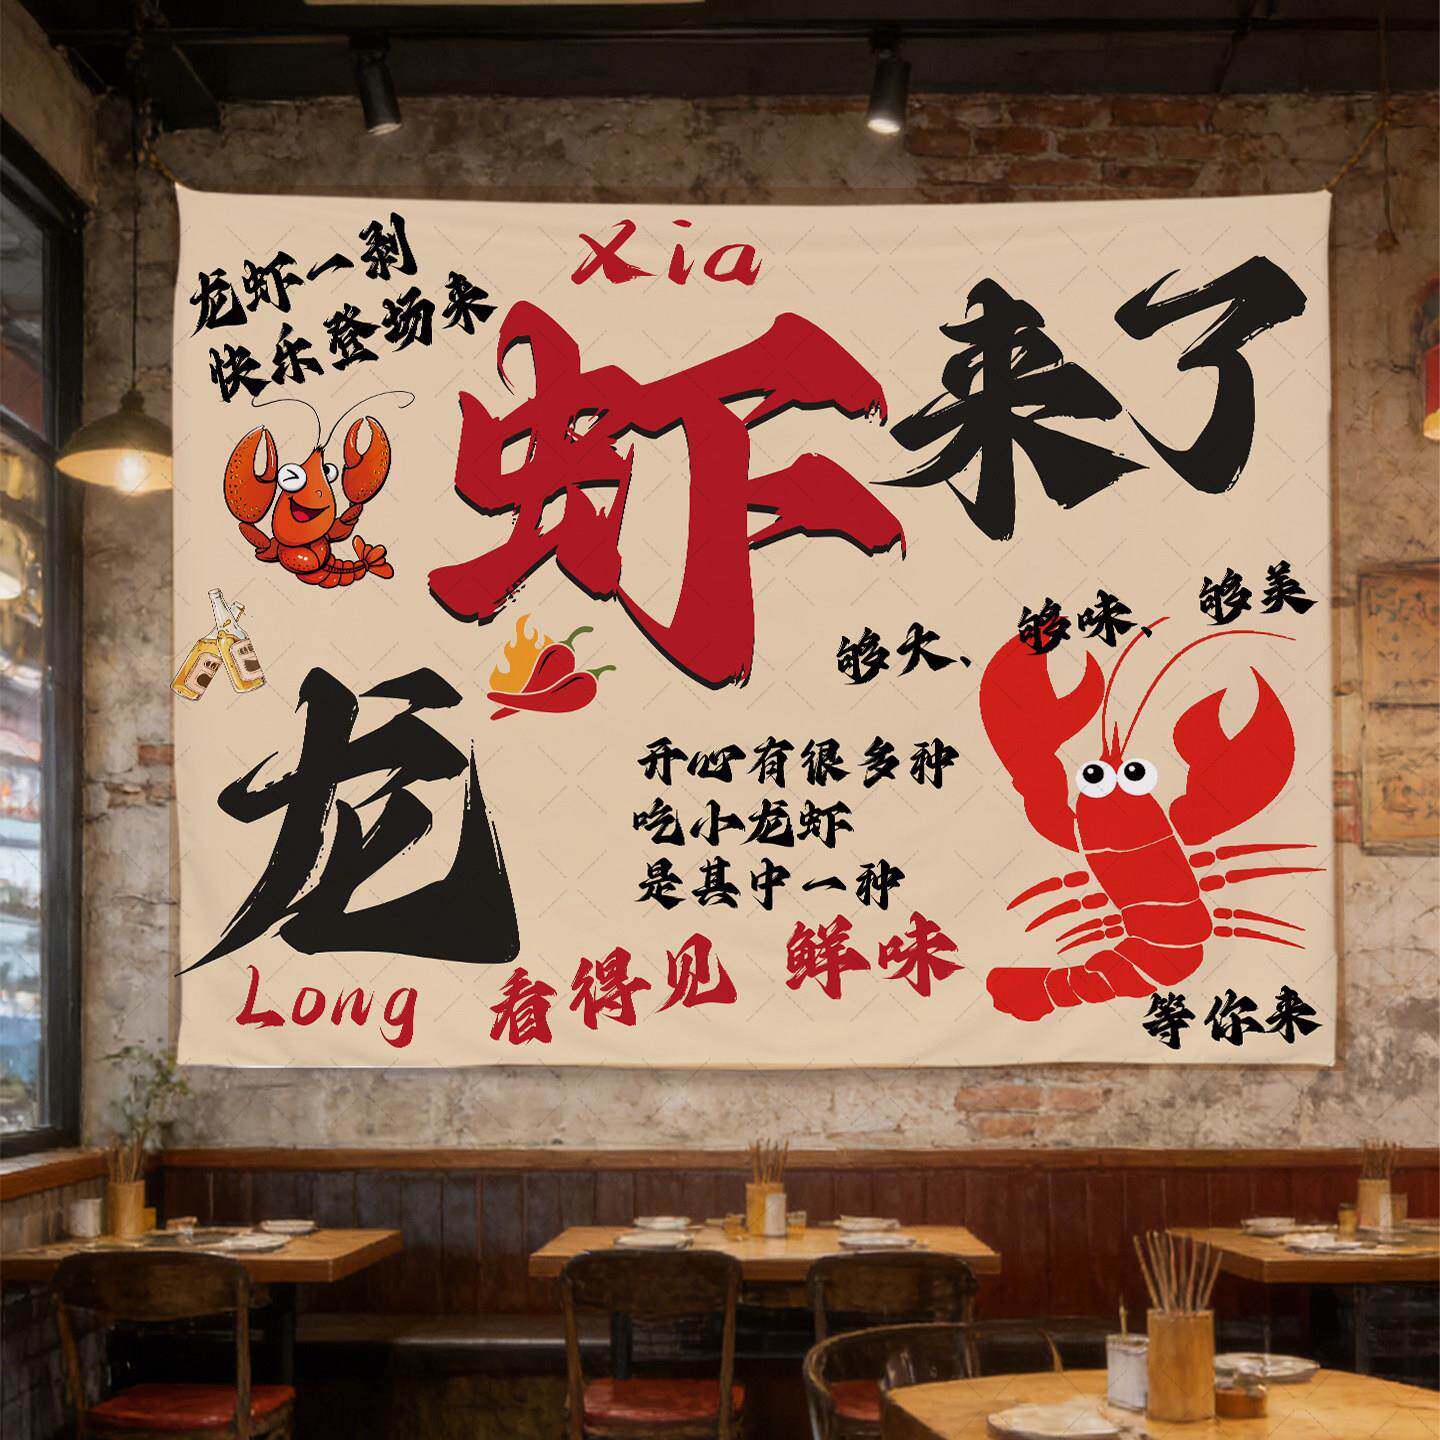 龙虾一剥
快乐登场来
Xia
虾来了
够大、够味、够美
龙
Long
开心有很多种
吃小龙虾
是其中一种
看得见 鲜味
等你来